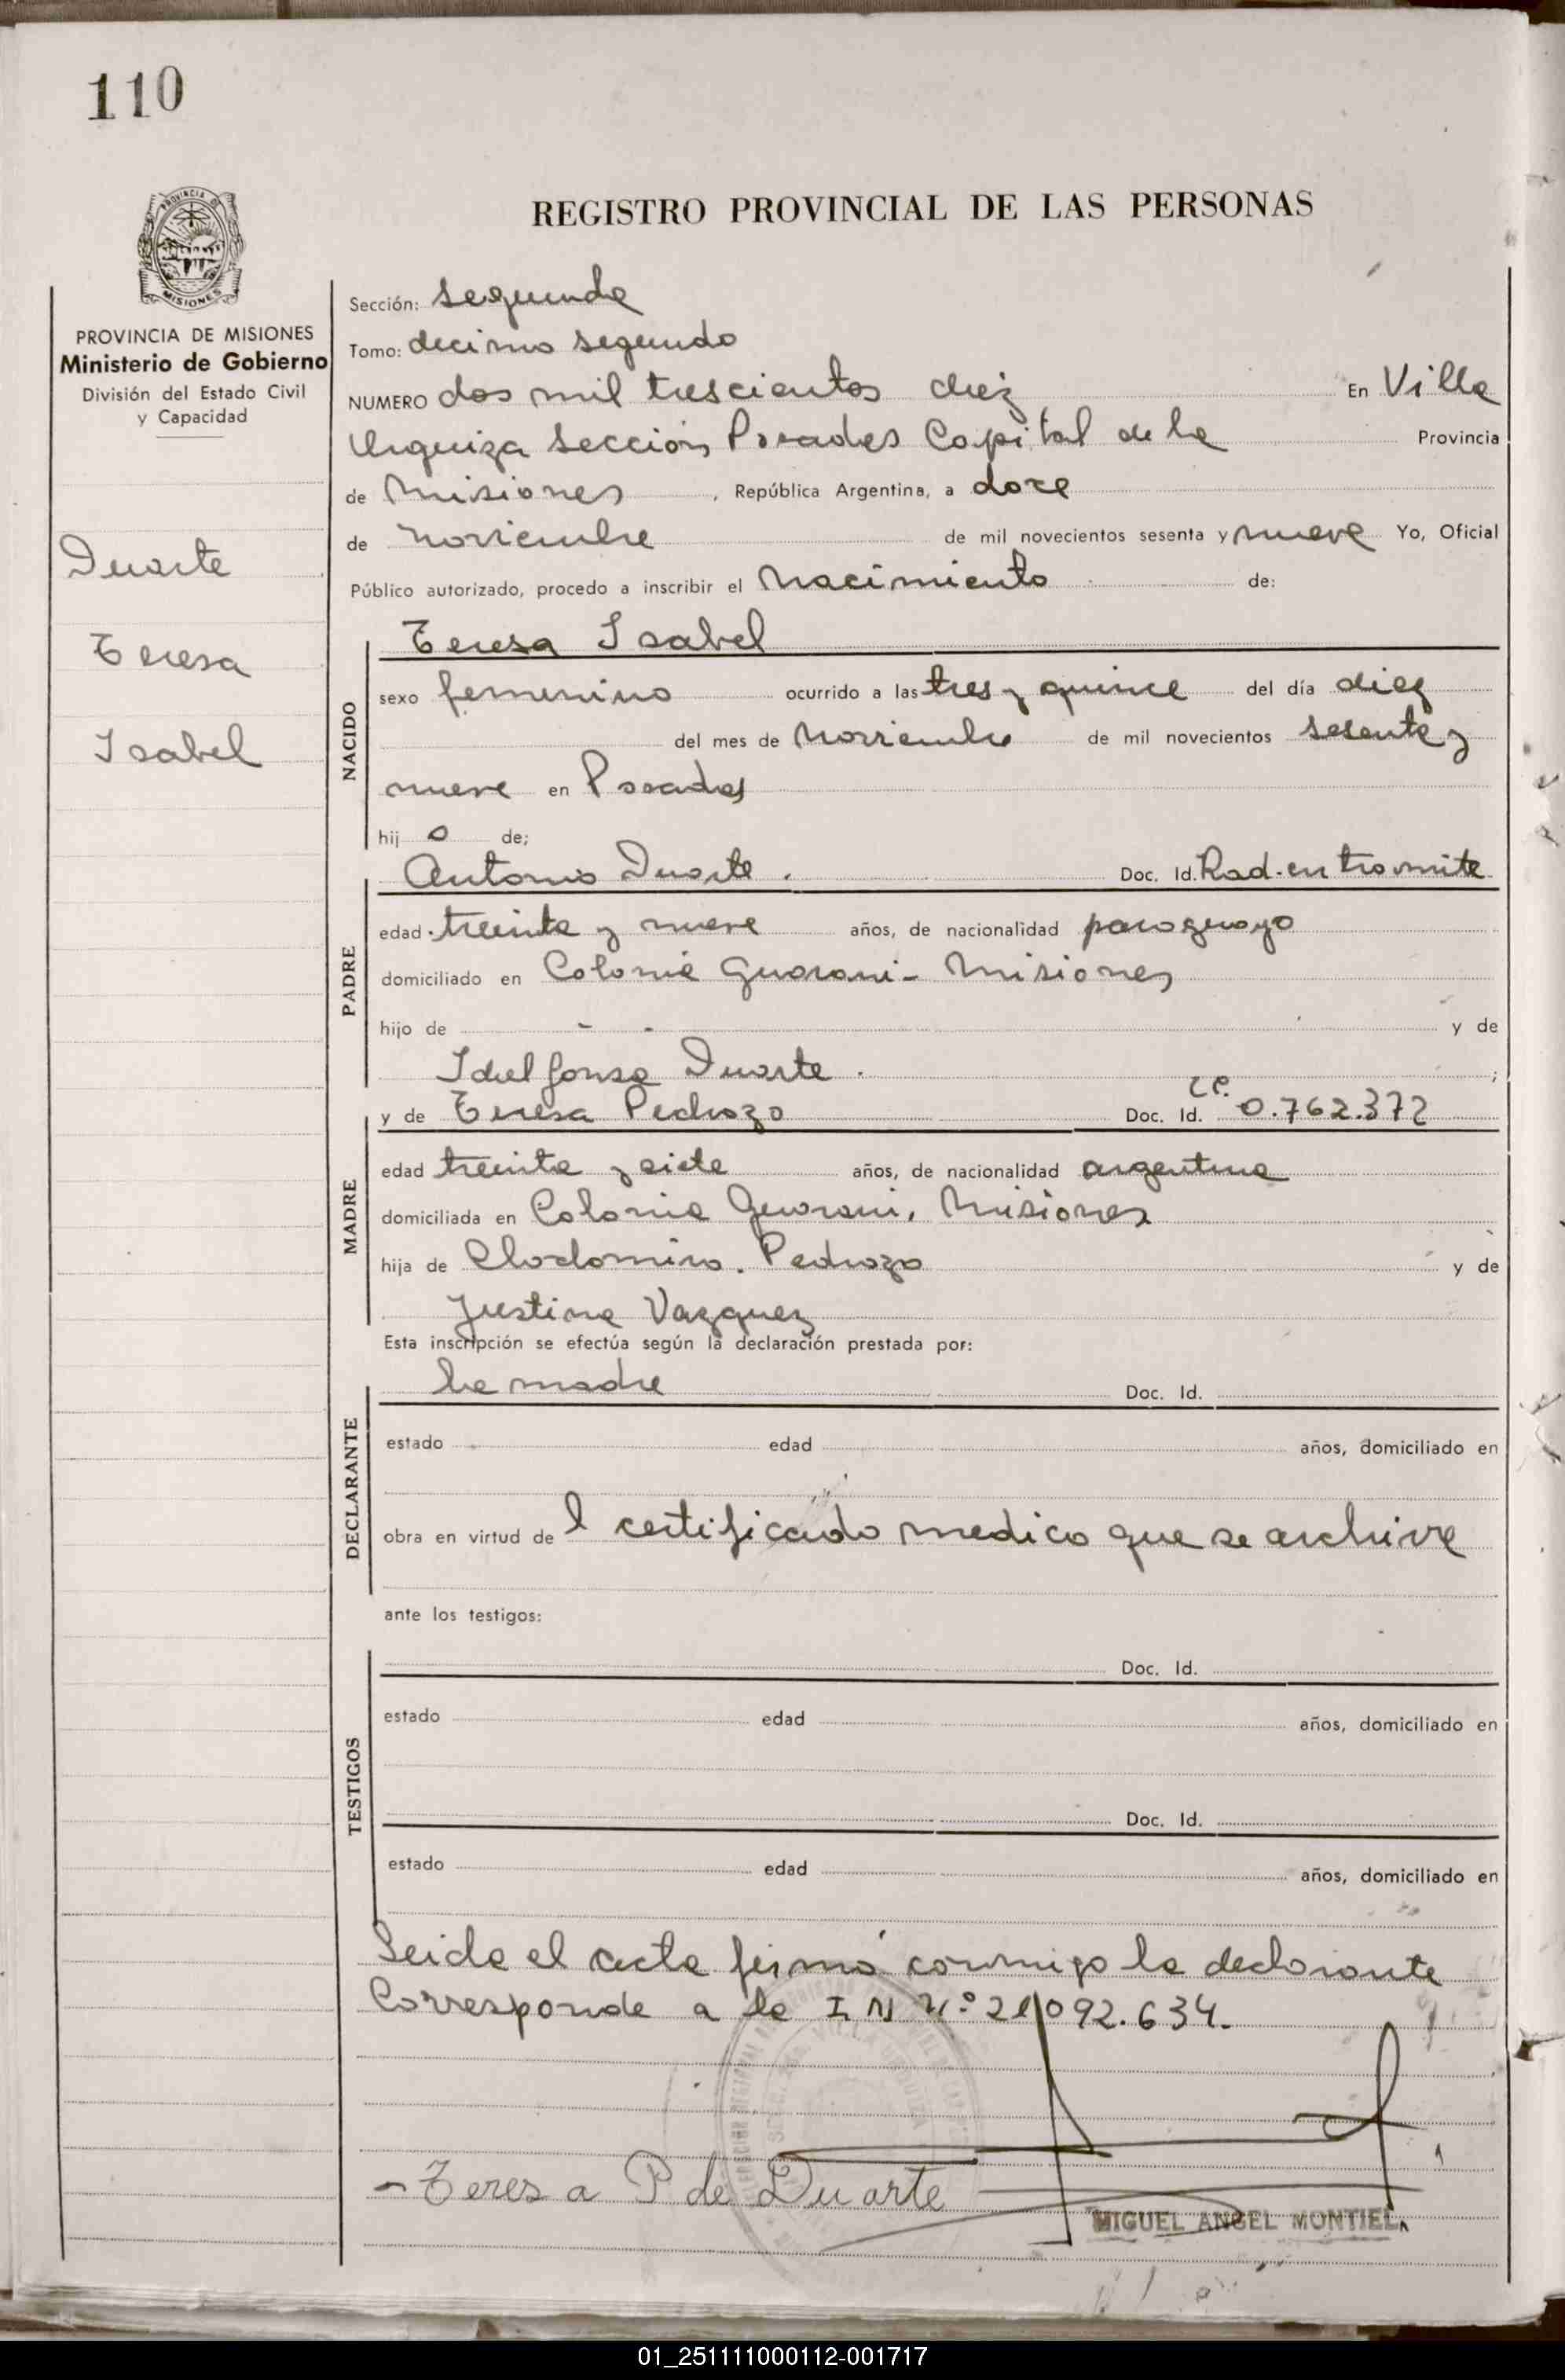 110
REGISTRO PROVINCIAL DE LAS PERSONAS
PROVINCIA DE
MISIONES
PROVINCIA DE MISIONES
Ministerio de Gobierno
División del Estado Civil
y Capacidad
Duarte
Teresa
Isabel
Sección: segunda
Tomo: decimo segundo
NUMERO dos mil trescientos diez En Villa
Urquiza Sección, Posadas Capital de la Provincia
de Misiones, República Argentina, a doce
de noviembre de mil novecientos sesenta y nueve Yo, Oficial
Público autorizado, procedo a inscribir el Nacimiento de:
NACIDO
Teresa Isabel
sexo femenino ocurrido a las tres y quince del día diez
del mes de Noviembre de mil novecientos sesenta y
nueve en Posadas
hij o de;
PADRE
Antonio Duarte. Doc. Id. Rad. en tramite
edad treinta y nueve años, de nacionalidad paraguayo
domiciliado en Colonia Guarani - Misiones
hijo de - - y de
Idelfonsa Duarte. ;
y de Teresa Pedrozo Doc. Id. 0.762.372
MADRE
edad treinta y siete años, de nacionalidad argentina
domiciliada en Colonia Guarani, Misiones
hija de Clodomiro. Pedrozo y de
Justina Vazquez
Esta inscripción se efectúa según la declaración prestada por:
DECLARANTE
la madre Doc. Id.
estado edad años, domiciliado en
obra en virtud de l certificado medico que se archiva
ante los testigos:
TESTIGOS
Doc. Id.
estado edad años, domiciliado en
Doc. Id.
estado edad años, domiciliado en
Leida el acta firmó conmigo la declarante
Corresponde a la I N N.º 21.092.634.
- Teresa P de Duarte
MIGUEL ANGEL MONTIEL
01_251111000112-001717